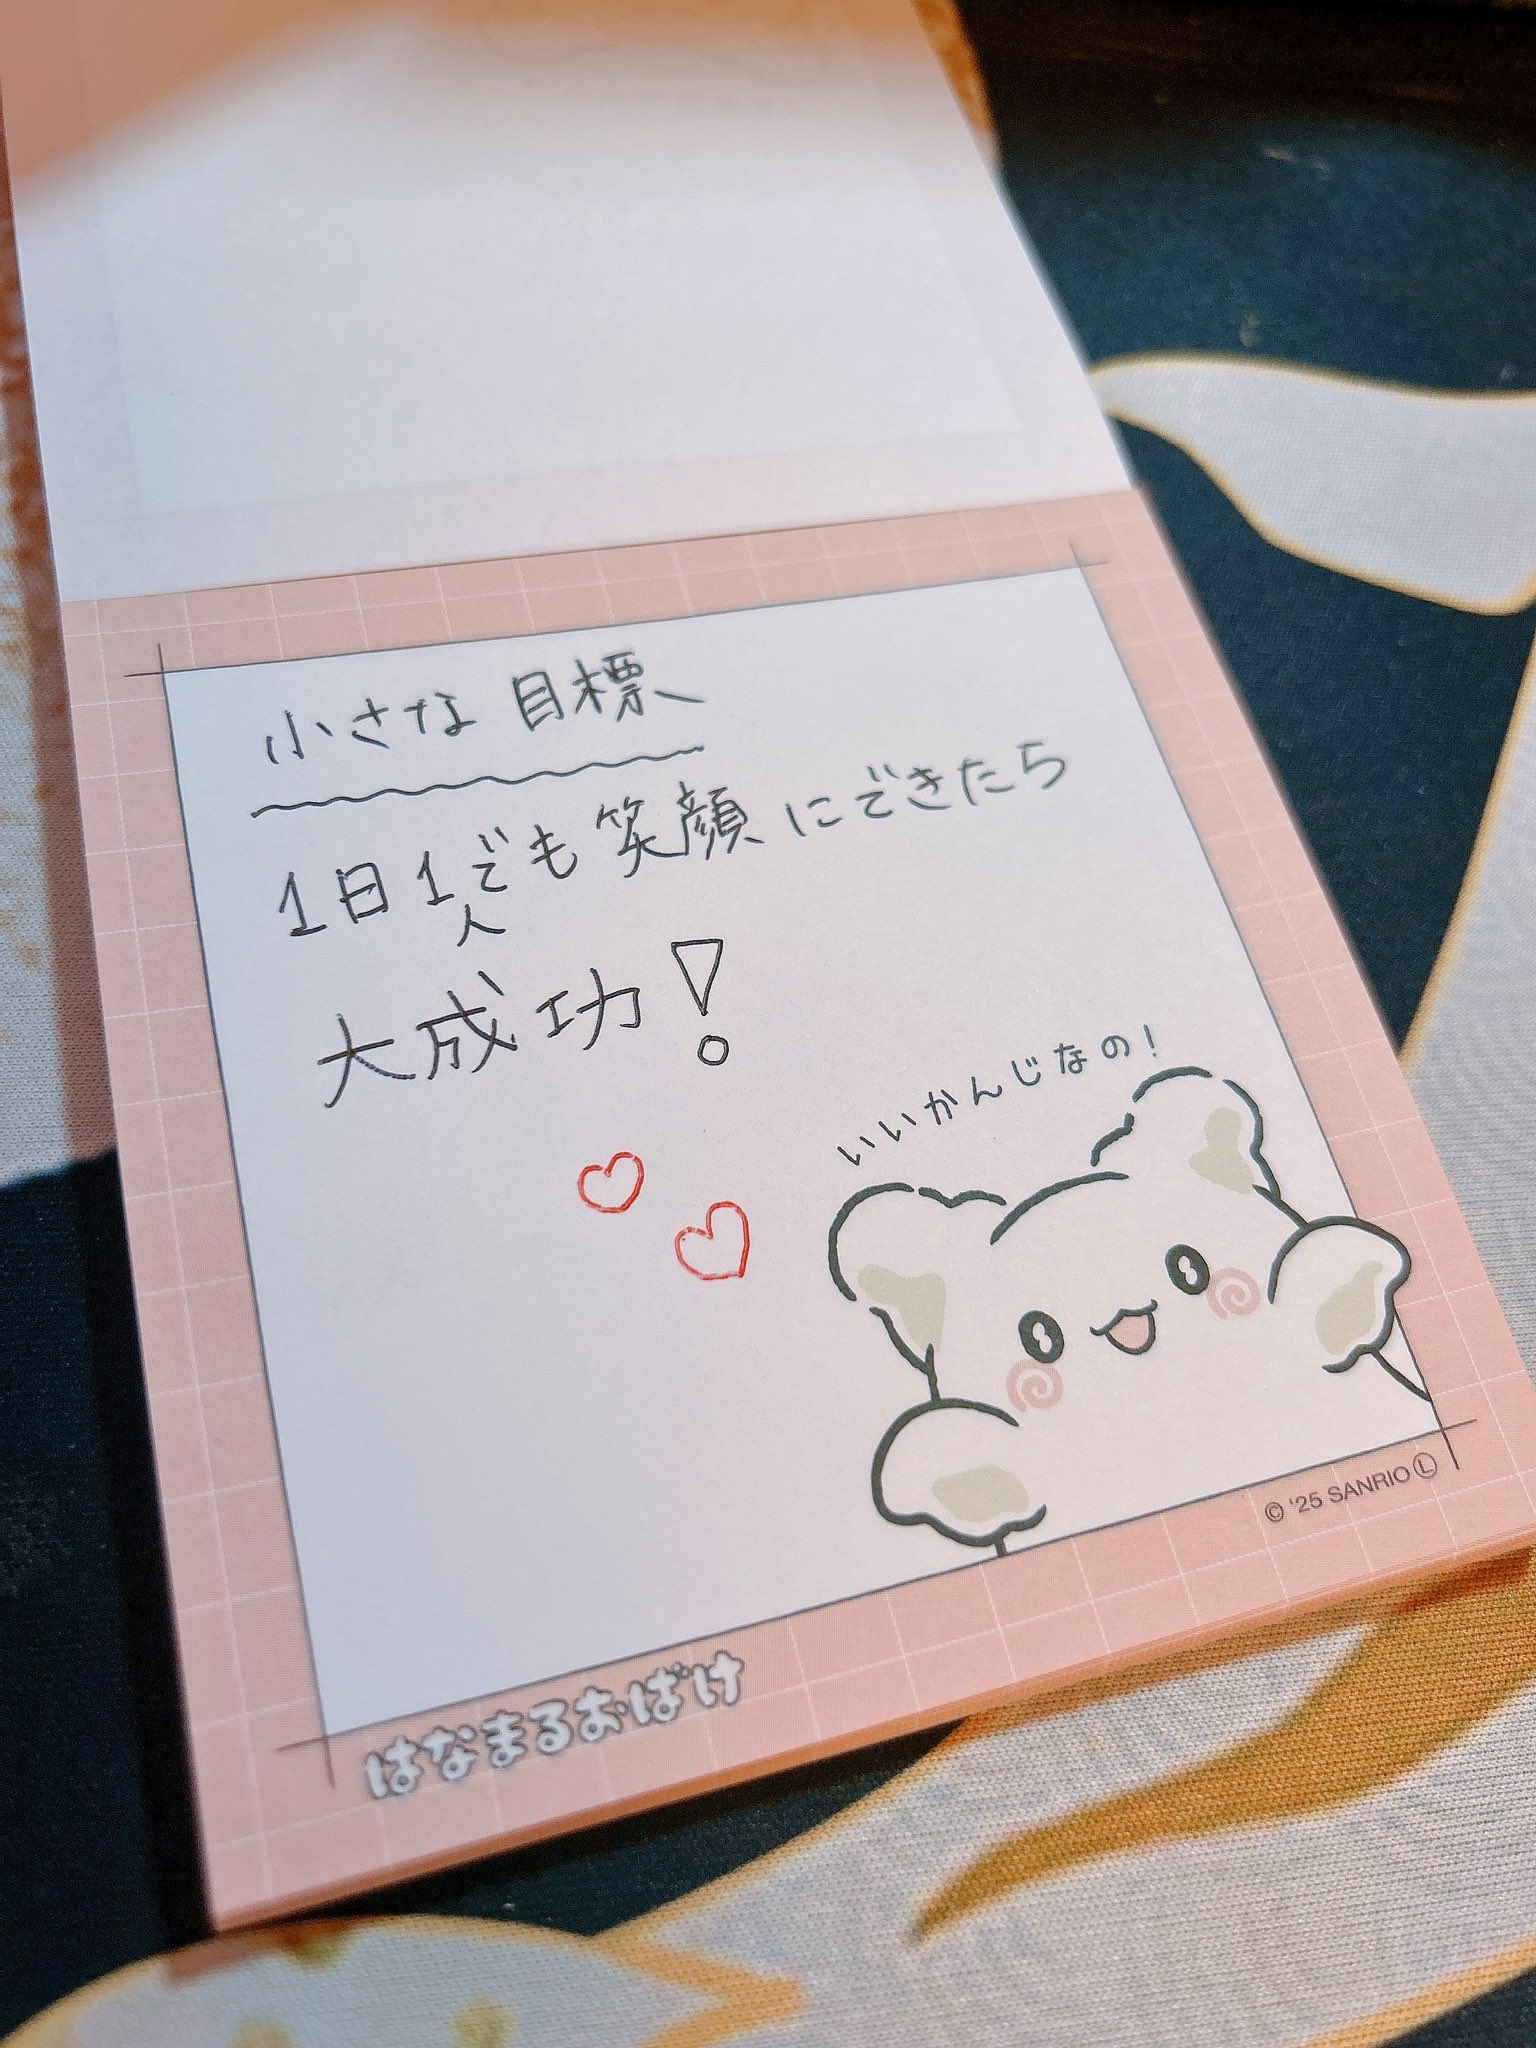 小さな目標
1日1人でも笑顔にできたら
大成功!
いいかんじなの!
© '25 SANRIO Ⓛ
はなまるおばけ